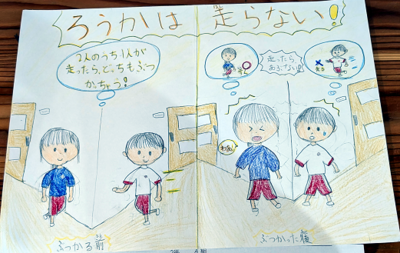 ろうかは 走らない!
2人のうち1人が
走ったら、どっちもぶつ
かっちゃう!
走ったら
あぶない!
ぶつかる前
ぶつかった後